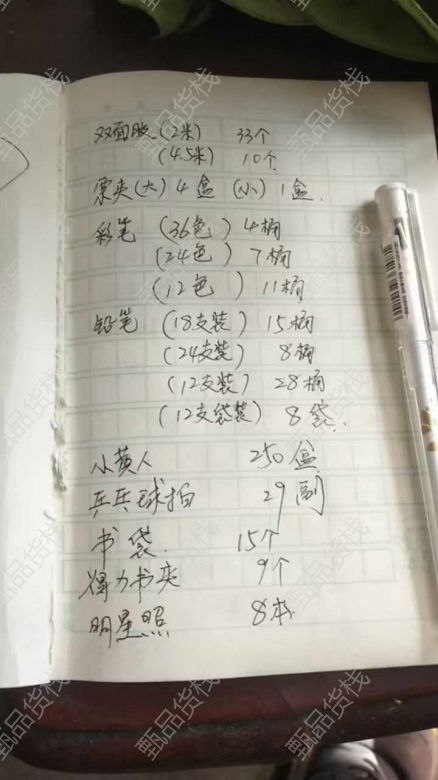 双面胶(2米) 33个
(4.5米) 10个
票夹(大)4盒 (小)1盒.
彩笔 (36色) 4桶
(24色) 7桶
(12色) 11桶
铅笔 (18支装) 15桶
(24支装) 8桶
(12支装) 28桶
(12支袋装) 8袋.
小黄人 250盒
乒乓球拍 29副
书袋. 15个
得力书夹 9个
明星照 8本
甄品货栈